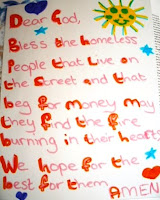 Dear God,
Bless the homeless
People that live on
the street and that
beg for money may
they find the fire
burning in their heart
We hope for the
best for them AMEN